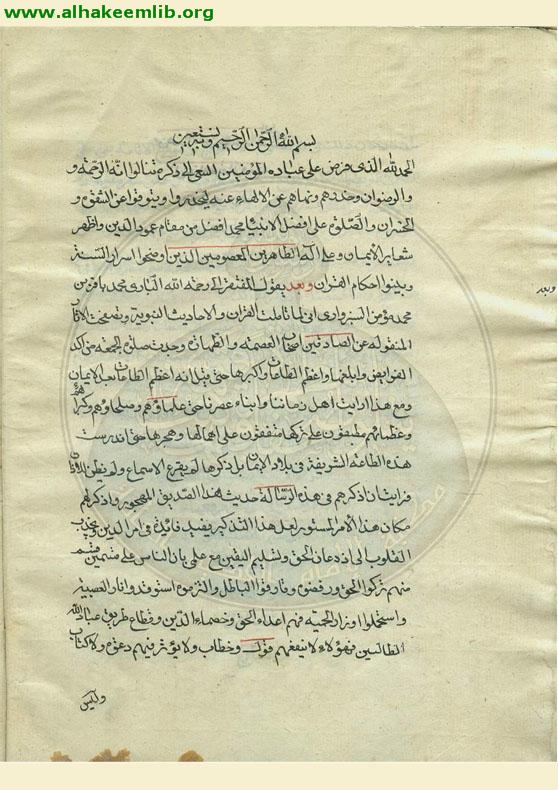 www.alhakeemlib.org
بسم الله الرحمن الرحيم وبه نستعين
الحمد لله الذى فرض على عباده المؤمنين السعى الى ذكره فنالوا الرحمة و
والرضوان وحذرهم ونهاهم عن الالهاء عنه ليحذروا ويتوقوا عن الشقوه و
الخسران والصلوة على افضل الانبياء محمد افضل من مقام عمود الدين واظهر
شعاير الايمان وعلى اله الطاهرين المعصومين الذين اوضحوا اسرار السنة
وبينوا احكام القران وبعد يقول المفتقر الى رحمة الله البارى محمد باقر بن
محمد مؤمن السبزوارى انى لما تاملت القران والاحاديث النبوية وتصفحت الاثار
المنقوله عن الصادقين اصحاب العصمة والطهارة وجدت صلوة الجمعه من اكد
الفرايض وابلغها واعظم الطاعات واكبرها حتى قيل انه اعظم الطاعات بعد الايمان
ومع هذا رايت اهل زماننا وابناء عصرنا حتى علماؤهم وصلحاؤهم وكبراؤهم
وعظمائهم مطبقون على تركها متفقون على اهمالها وهجرها حتى اندرست
هذه الطاعة الشريفة في بلاد الايمان بل ذكرها لم يقرع الاسماع ولم يطن الاذان
فرايت ان اذكرهم في هذه الرسالة حديث هذا الصديق المهجور واذكر لهم
مكان هذا الامر المستور لعل هذا التذكير يفيد فائدة في امر الدين ويجذب
القلوب الى اذعان الحق وتسليم اليقين مع علمى بان الناس على قسمين فقسم
منهم تركوا الحق ورفضوه وفارقوا الباطل والتزموه استوقدوا نار العصبية
واستحملوا اوزار الحمية فهم اعداء الحق وخصماء الدين وقطاع طريق عباد الله
الطالبين فهؤلاء لا ينفعهم قول وخطاب ولا يؤثر فيهم دعوة ولا كتاب
وليس
وبعد